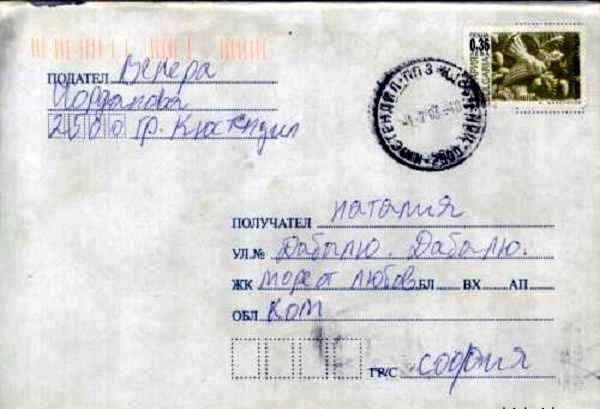 ПОДАТЕЛ Венера
Йорданова
2500 гр. Кюстендил
ПОЩА
0,36
ЛЕВА
БЪЛГАРИЯ
КЮСТЕНДИЛ-ПП 3
2500
ПОЛУЧАТЕЛ наталия
УЛ.№ Дабалю. Дабалю.
ЖК море от любов БЛ ВХ АП
ОБЛ Ком
ГР/С софия